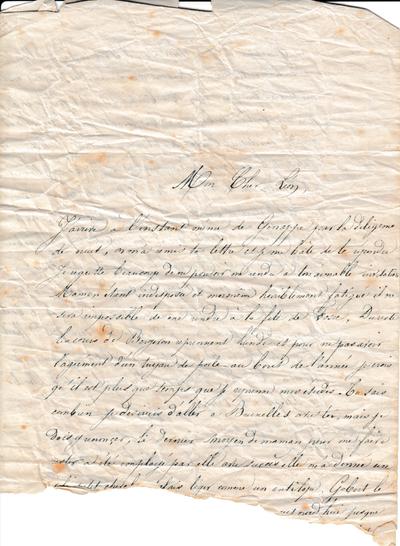 Mon Cher Léon,
J'arrive à l'instant même de Genappe par la diligence
de nuit, on m'a remis ta lettre et je me hâte de te répondre
Je regrette beaucoup de ne pouvoir me rendre à ton aimable invitation
Maman étant indisposée et moi-même horriblement fatigué il me
sera impossible de me rendre à la fête de Rose, Du reste
les cours de reprennent lundi et pour ne pas avoir
l'agrément d'un tuyau de poële au bout de l'année je crois
qu'il est plus que temps que je reprenne mes études. Tu sais
combien je désirais d'aller à Bruxelles avec toi, mais je
dois y renoncer, le dernier moyen de maman pour me faire
rester a été employé par elle avec succès elle m'a donné un
petit cheval léger comme un antilope. Gobert le
jusque